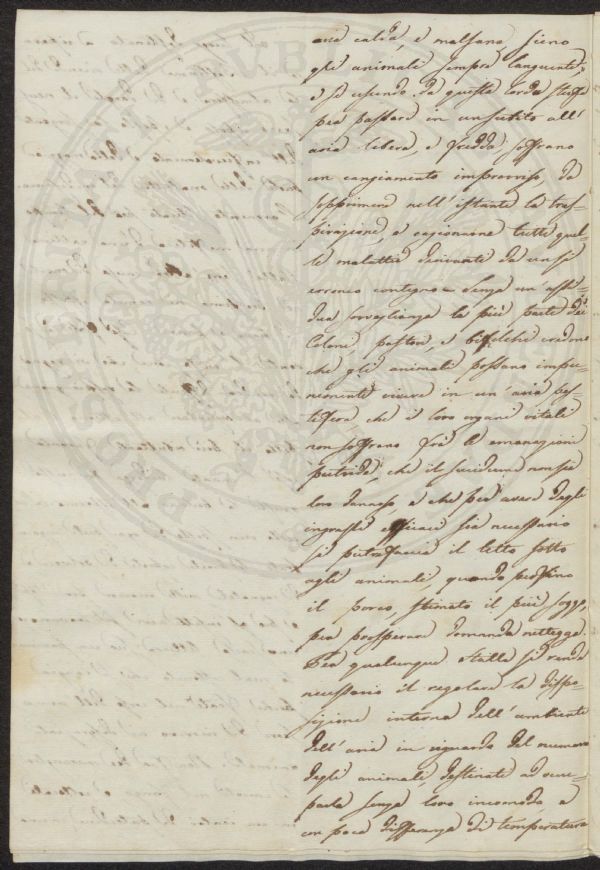 aria calda, e malsana sieno
gli animali sempre languenti,
e se uscendo da queste corde stuffe
per passare in un subito all'
aria libera, e fredda soffrano
un cangiamento improvviso, da
sopprimere nell'istante la tras-
pirazione, e cagionarne tutte quel-
le malattie derivante da un sì
erroneo contegno. Senza un'assi-
dua sorveglianza la più parte dei
Coloni pastori, e bifolchi credono
che gli animali possano impu-
nemente vivere in un'aria pes-
tifera che i loro organi vitali
non soffrano frà le emanazioni
putride, che il sucidume non sia
loro dannoso, e che per avere degli
ingrassi efficaci sia necessario
si putrefaccia il letto sotto
agli animali, quando perfino
il porco, stimato il più sozzo,
per prosperare domanda nettezza.
Per qualunque stalla si rende
necessario il regolare la dispo-
sizione interna dell'ambiente
dell'aria in riguardo del numero
degli animali, destinati ad occu-
parla senza loro incomodo e
con poca differenza di temperatura